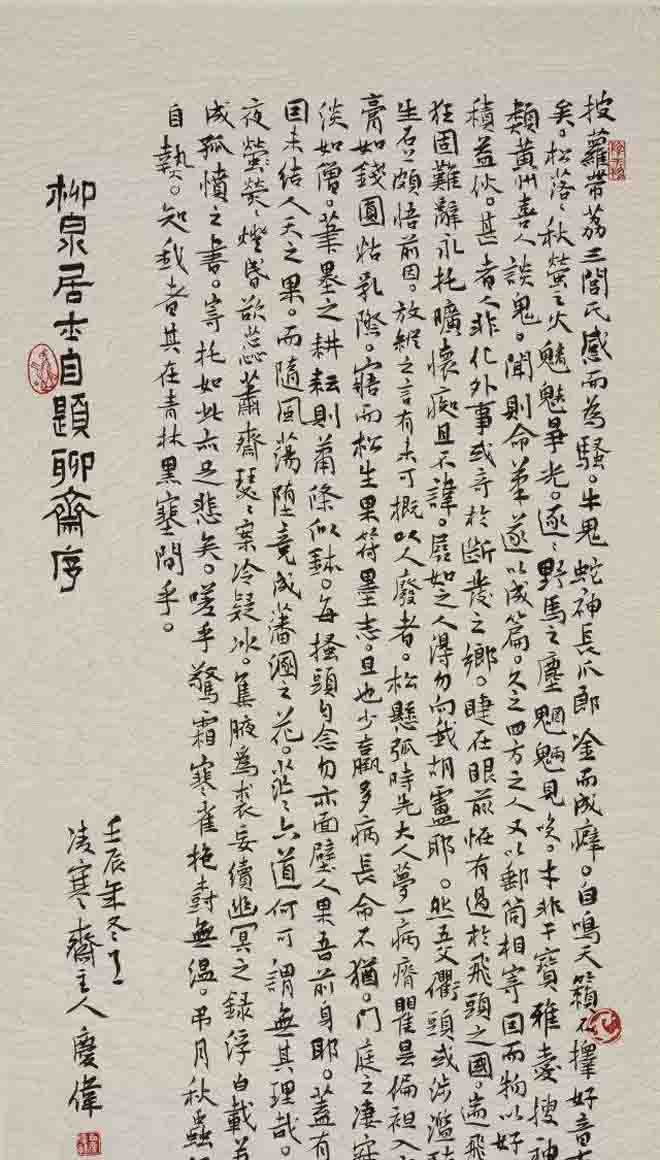 披蘿帶荔三閭氏感而為騷。牛鬼蛇神長爪郎唫而成癖。自鳴天籟不擇好音
矣。松落〻秋螢之火魑魅爭光。逐〻野馬之塵魍魎見笑。才非干寶雅愛搜神
類黃州喜人談鬼。聞則命筆遂以成篇。久之四方之人又以郵筒相寄因而物以好
積益伙。甚者人非化外事或奇於斷發之鄉。睫在眼前怪有過於飛頭之國。遄飛
狂固難辭永托曠懷痴且不諱。展如之人得勿向我胡盧耶。然五父衢頭或涉濫
生石上頗悟前因。放縱之言有未可概以人廢者。松懸弧時先大人夢一病瘠瞿曇偏袒入
膏如錢圓粘乳際。寤而松生果符墨志。且也少羸多病長命不猶。門庭之凄寂
淡如僧。筆墨之耕耘則蕭條似鉢。每搔頭自念勿亦面壁人果吾前身耶。蓋有
因未結人天之果。而隨風蕩墮竟成藩溷之花。茫〻六道何可謂無其理哉。
夜熒熒〻燈昏欲蕊蕭齋瑟〻案冷疑冰。集腋為裘妄續幽冥之錄浮白載
成孤憤之書。寄托如此亦足悲矣。嗟乎驚霜寒雀抱樹無溫。弔月秋蟲
自熱。知我者其在青林黑塞間乎。
柳泉居士自題聊齋序
壬辰年冬月
凌寒齋主人慶偉